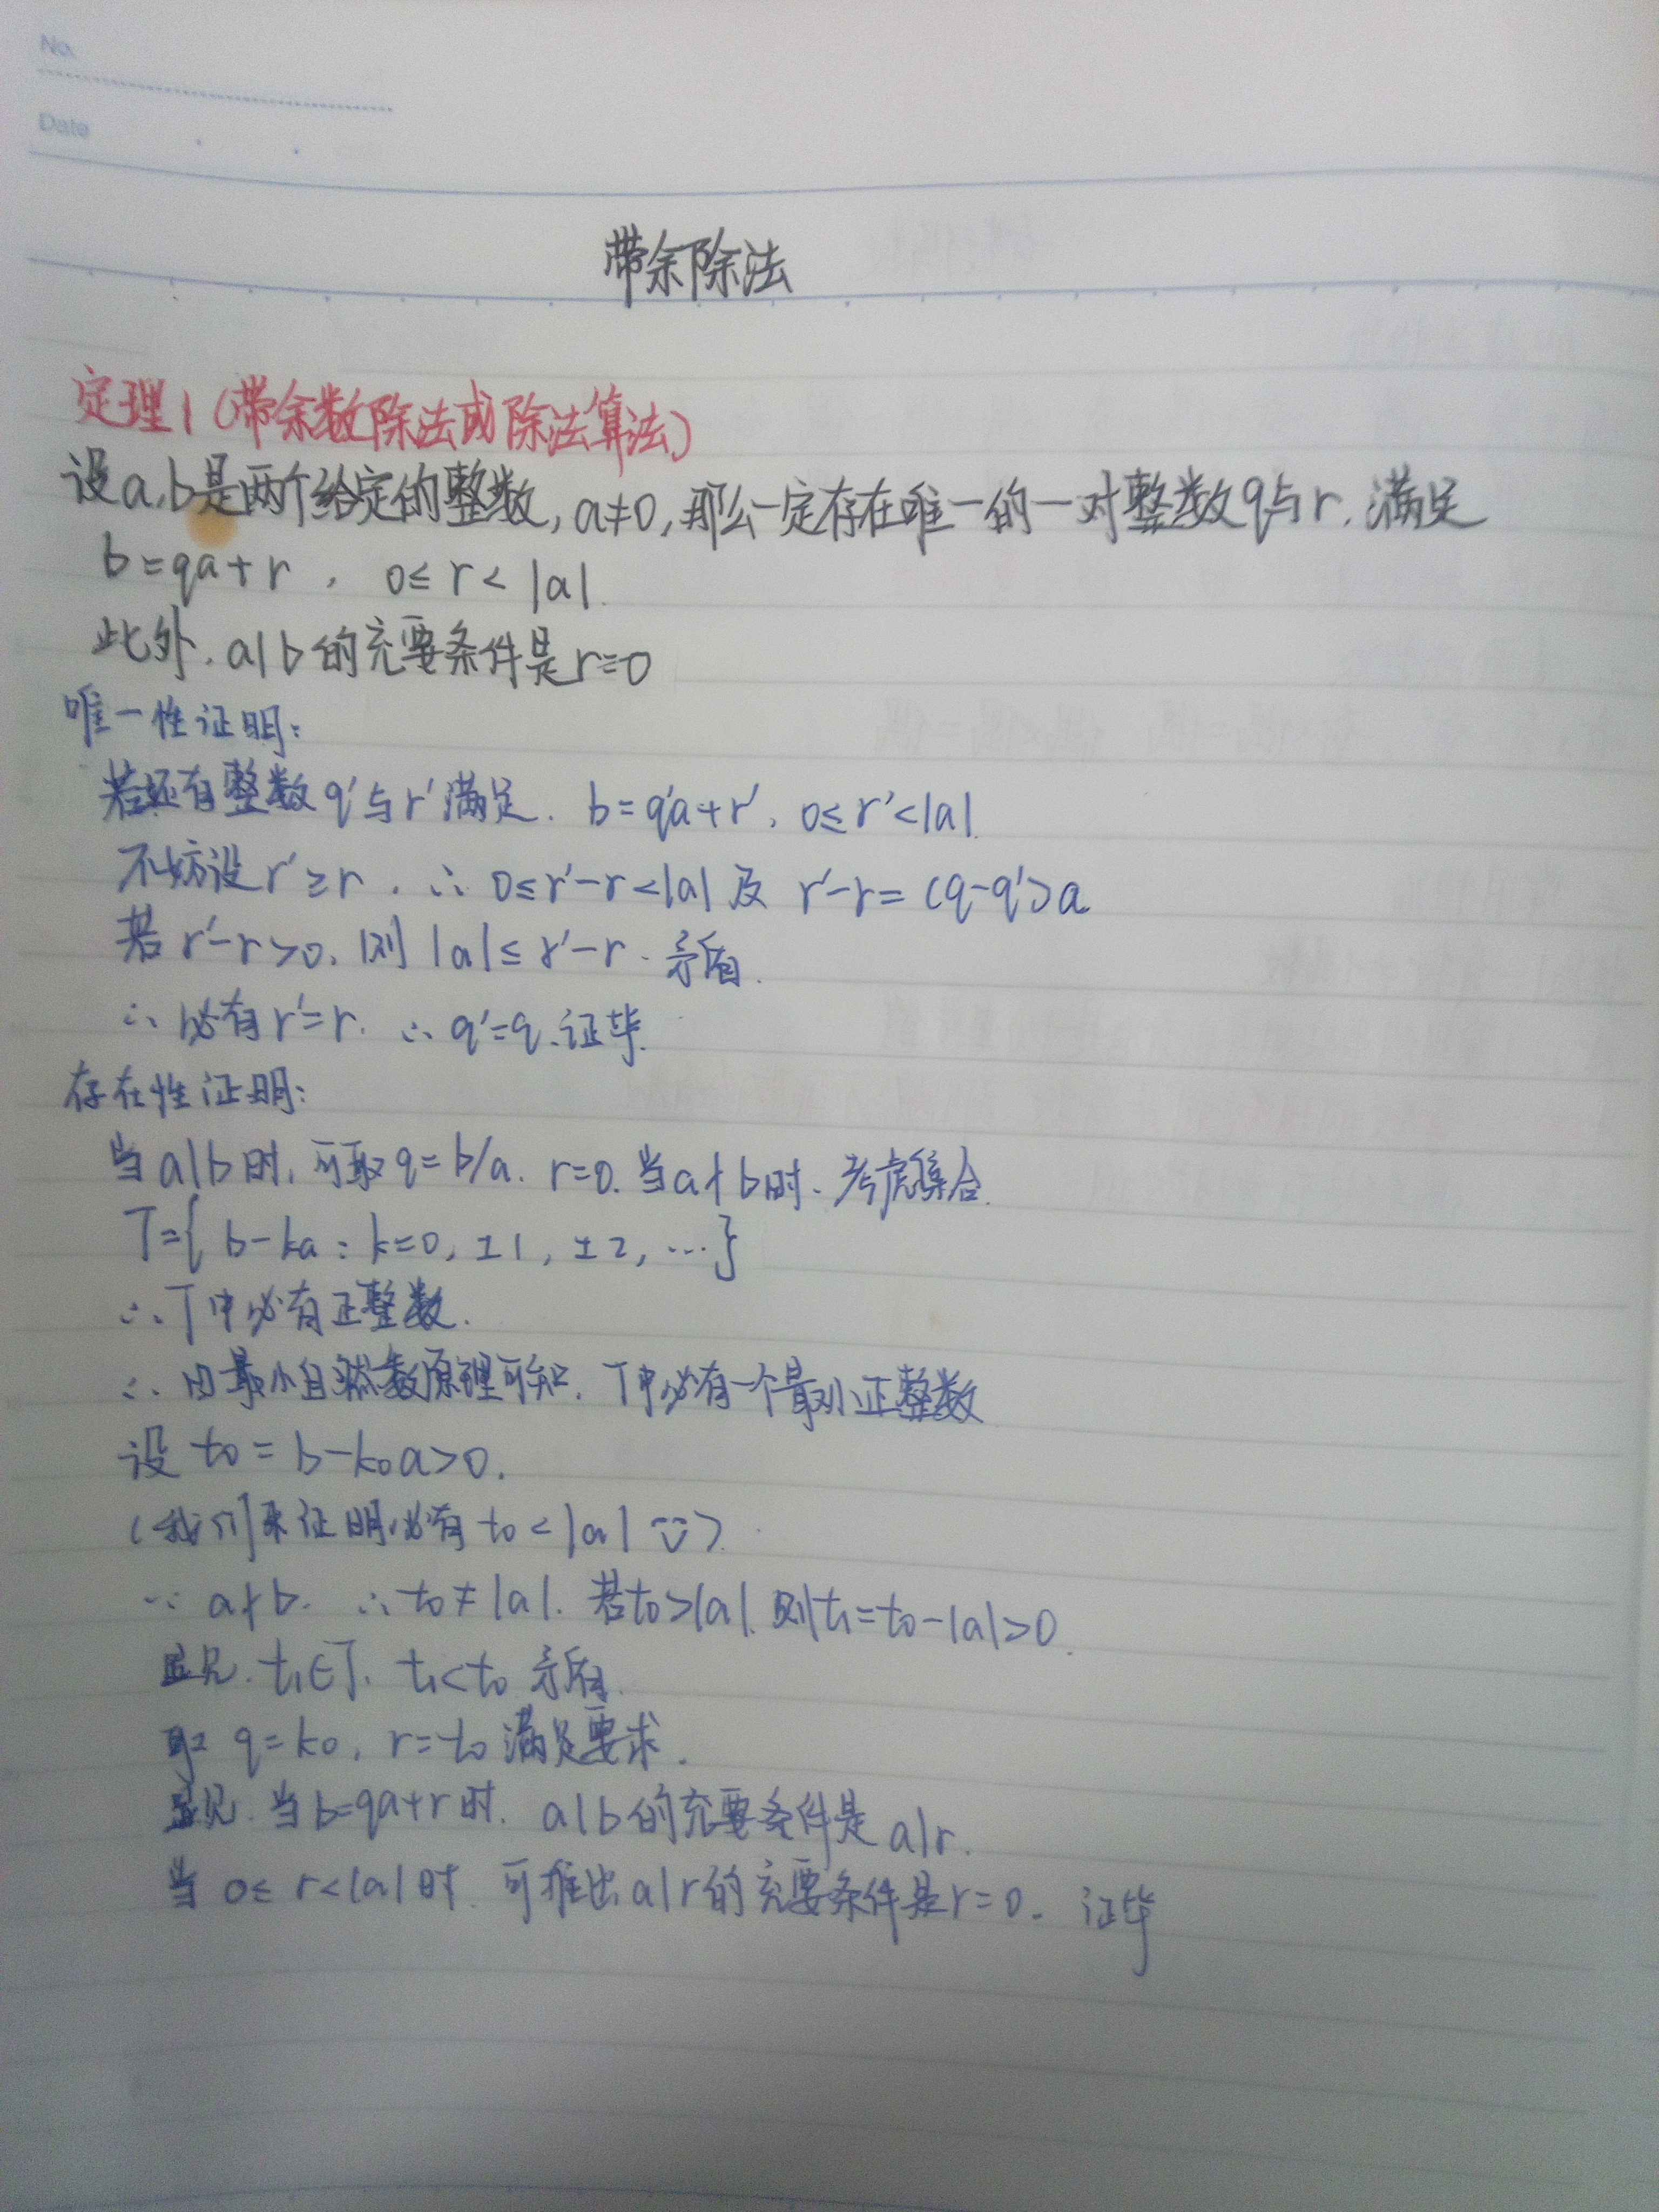 No.
Date
带余除法
定理1(带余数除法或除法算法)
设a,b是两个给定的整数,a≠0,那么一定存在唯一的一对整数q与r,满足
b=qa+r, 0≤r<|a|.
此外,a|b的充要条件是r=0
唯一性证明:
若还有整数q′与r′满足. b=q′a+r′, 0≤r′<|a|.
不妨设r′≥r. ∴ 0≤r′-r<|a|及 r′-r=(q-q′)a
若r′-r>0,则|a|≤r′-r.矛盾.
∴必有r′=r. ∴q′=q.证毕.
存在性证明:
当a|b时,可取q=b/a. r=0.当a∤b时、考虑集合.
T={b-ka: k=0, ±1, ±2, …}
∴T中必有正整数.
∴由最小自然数原理可知.T中必有一个最小正整数
设t₀=b-k₀a>0.
(我们来证明必有t₀<|a| )
∵a∤b. ∴t₀≠|a|.若t₀>|a|.则t₁=t₀-|a|>0.
显见.t₁∈T. t₁<t₀矛盾.
取q=k₀, r=t₀满足要求.
显见.当b=qa+r时. a|b的充要条件是a|r.
当0≤r<|a|时.可推出a|r的充要条件是r=0. 证毕